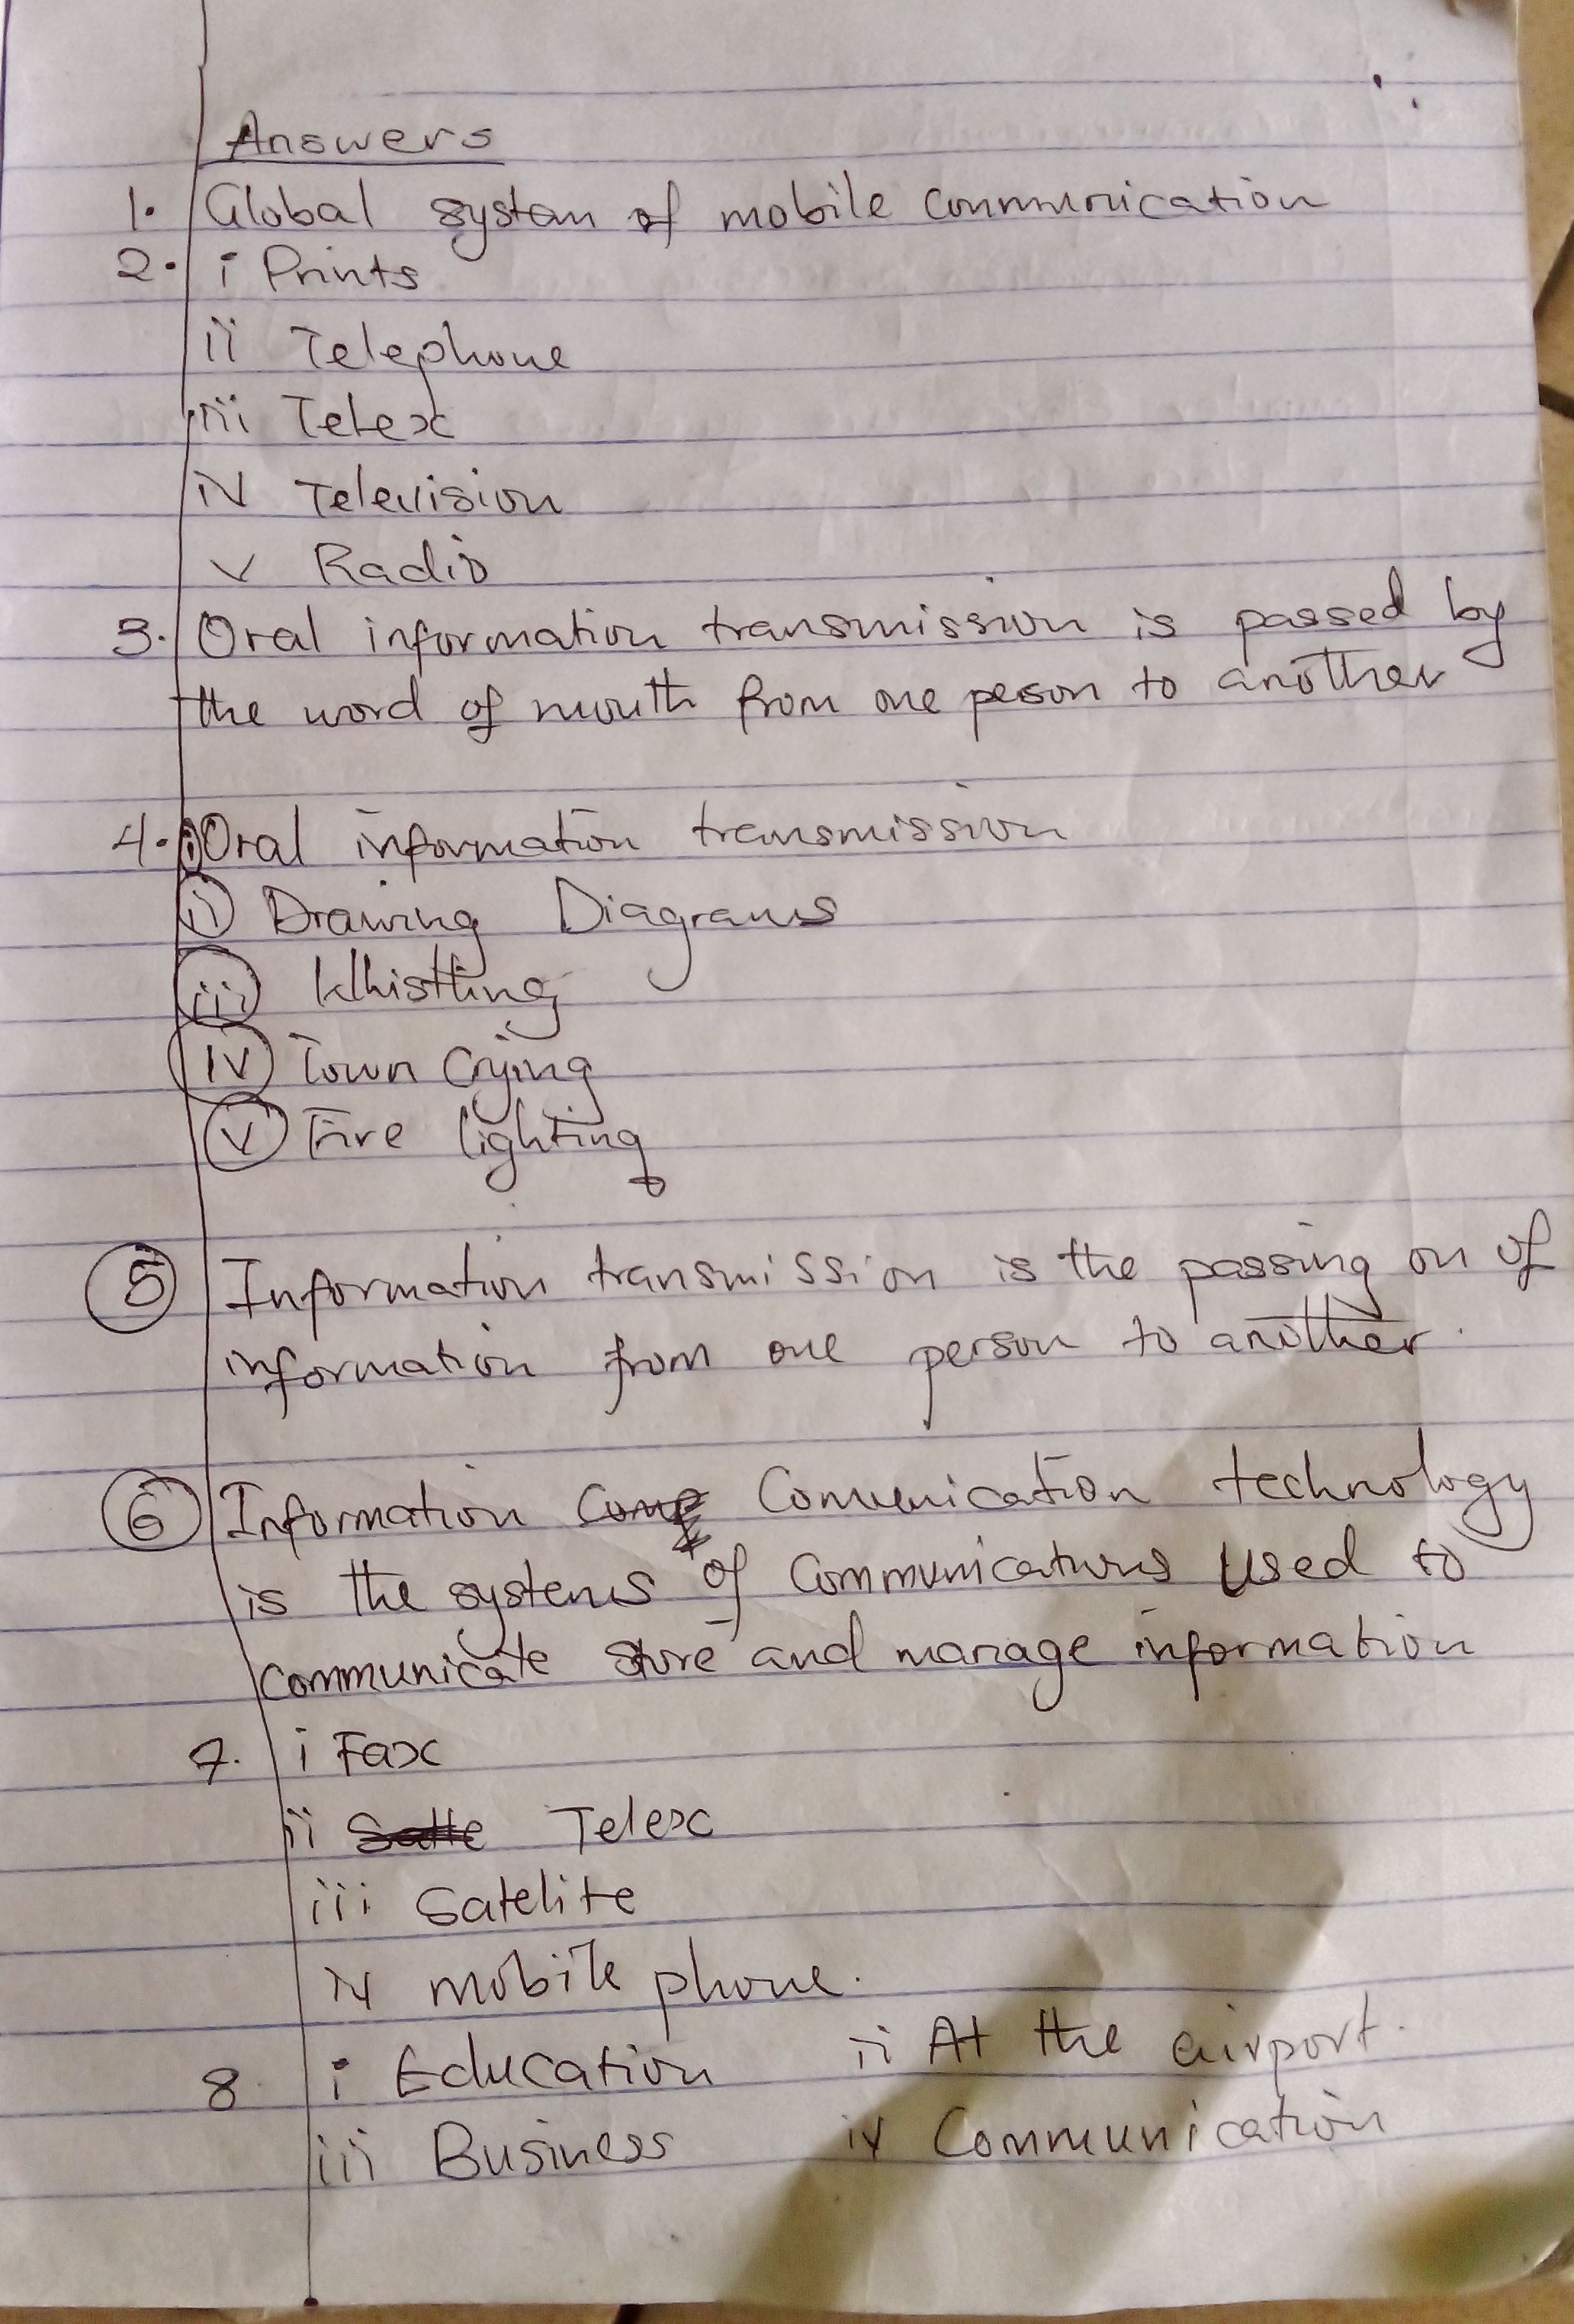 Answers
1. Global system of mobile communication
2. i Prints
ii Telephone
iii Telex
iv Television
v Radio
3. Oral information transmission is passed by
the word of mouth from one person to another
4. i Oral information transmission
ii Drawing Diagrams
iii Whistling
iv Town Crying
v Fire lighting
5 Information transmission is the passing on of
information from one person to another.
6 Information Communication technology
is the systems of Communications used to
communicate store and manage information
7. i Fax
ii Telex
iii Satelite
iv mobile phone.
8 i Education ii At the airport.
iii Business iv Communication